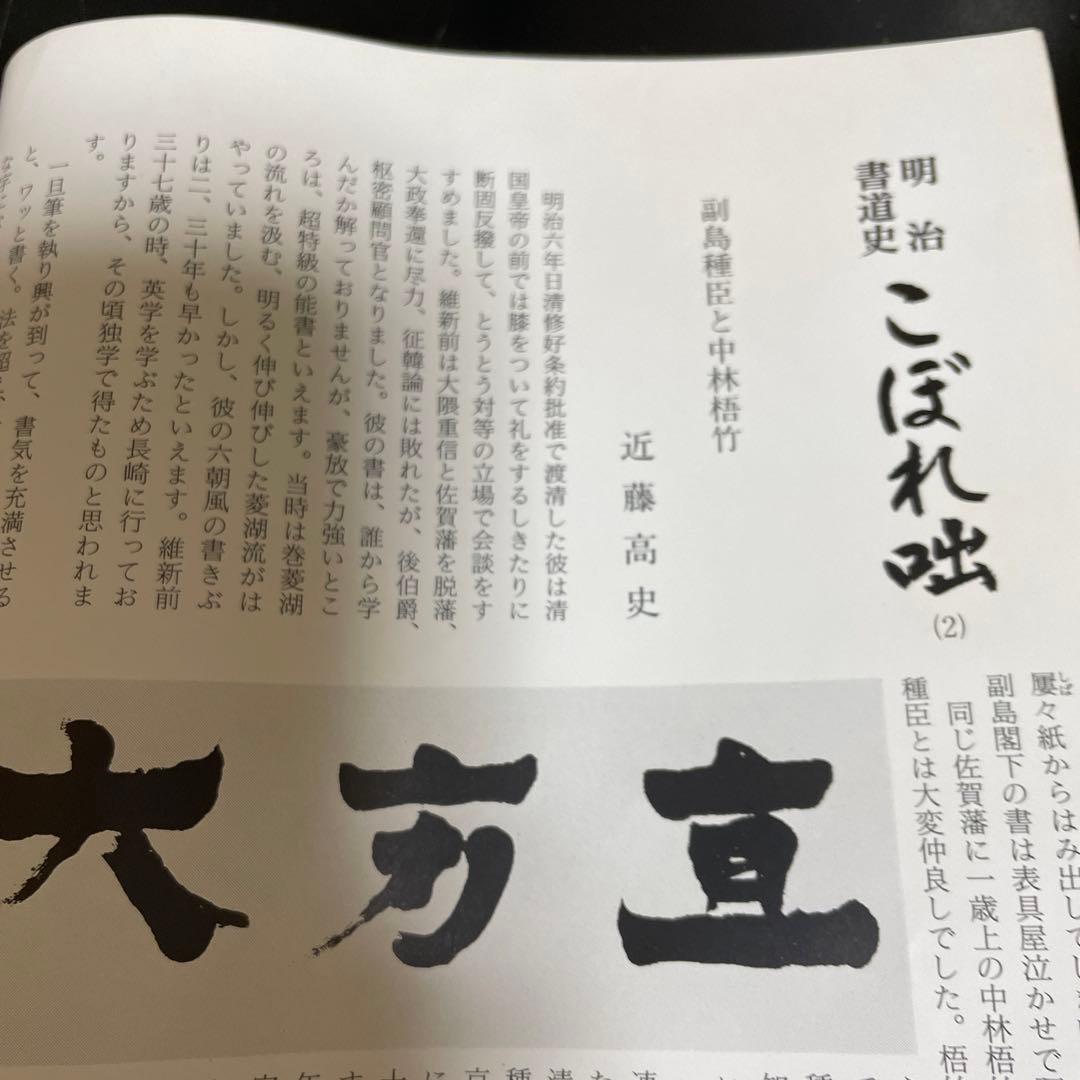 明治
書道史
こぼれ咄
(2)
副島種臣と中林梧竹
近藤高史
明治六年日清修好条約批准で渡清した彼は清
国皇帝の前では膝をついて礼をするしきたりに
断固反撥して、とうとう対等の立場で会談をす
すめました。維新前は大隈重信と佐賀藩を脱藩、
大政奉還に尽力、征韓論には敗れたが、後伯爵、
枢密顧問官となりました。彼の書は、誰から学
んだか解っておりませんが、豪放で力強いとこ
ろは、超特級の能書といえます。当時は巻菱湖
の流れを汲む、明るく伸び伸びした菱湖流がは
やっていました。しかし、彼の六朝風の書きぶ
りは二、三十年も早かったといえます。維新前
三十七歳の時、英学を学ぶため長崎に行ってお
りますから、その頃独学で得たものと思われま
す。
一旦筆を執り興が到って、書気を充満させる
と、ワッと書く。法を
屢々紙からはみ出してしまう
しば
副島閣下の書は表具屋泣かせで
同じ佐賀藩に一歳上の中林梧
種臣とは大変仲良しでした。梧竹
直方大